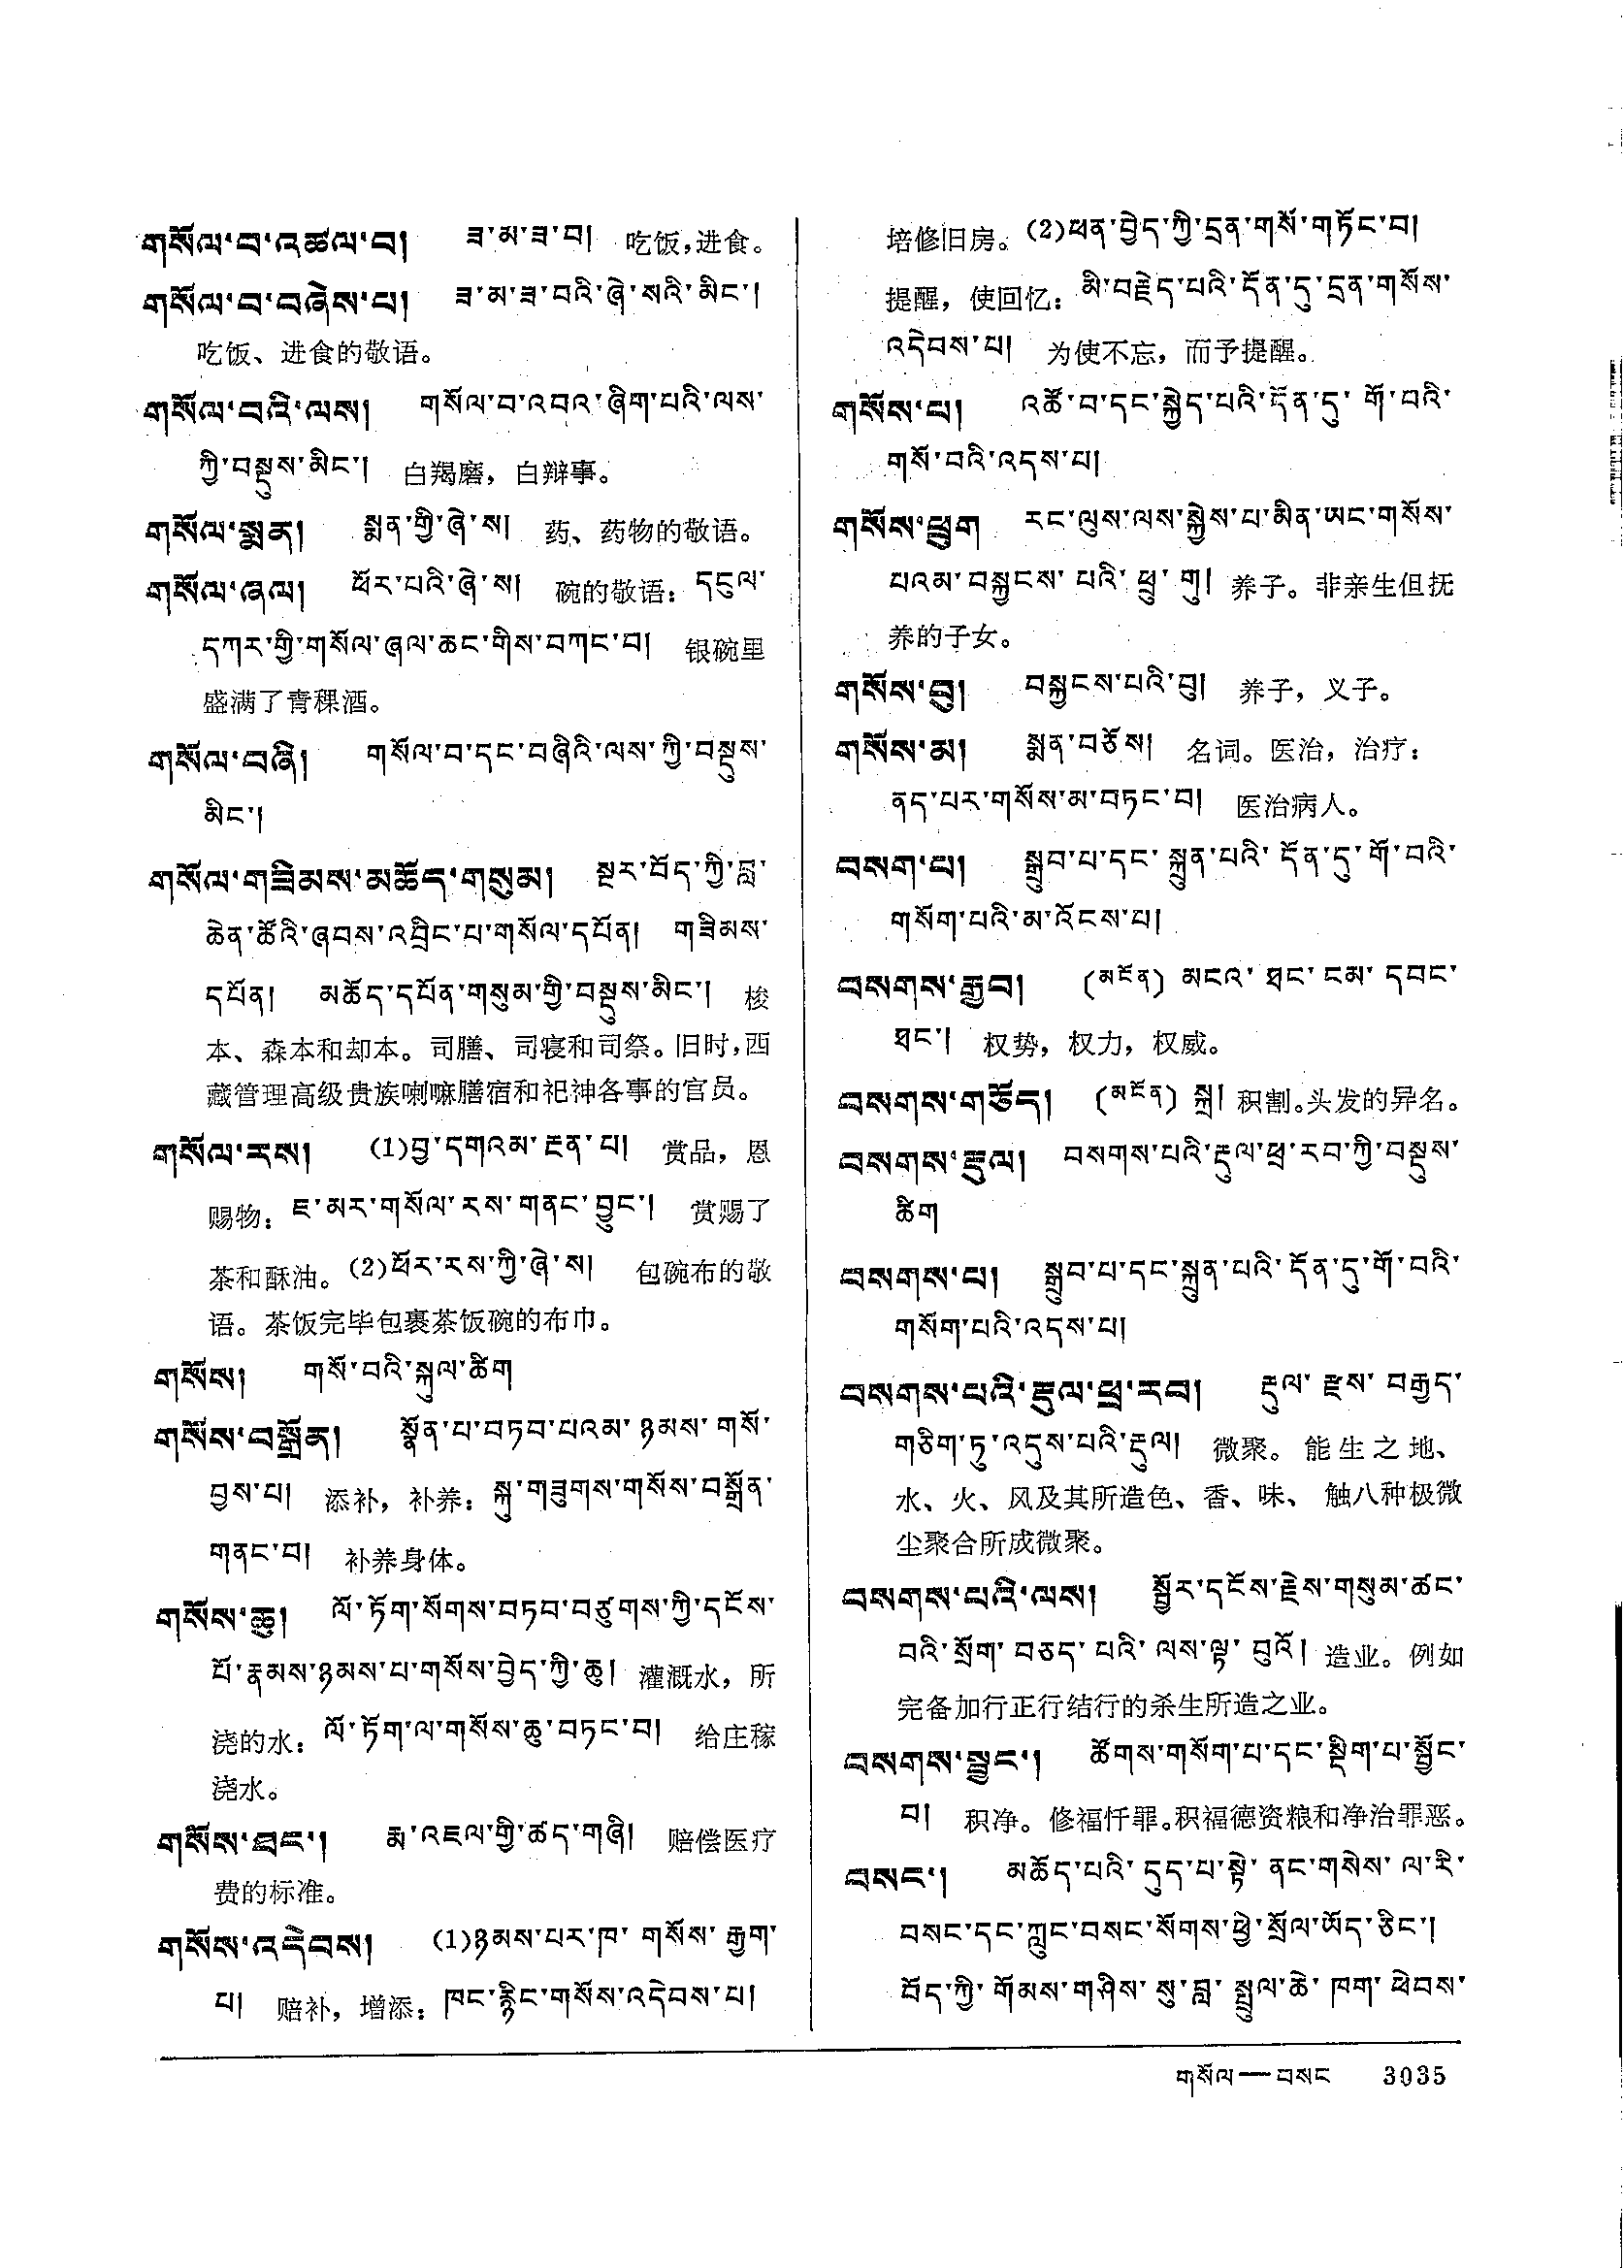 གསོལ་བ་འཚལ་བ། ཟ་མ་ཟ་བ། 吃饭,进食。
གསོལ་བ་བཞེས་པ། ཟ་མ་ཟ་བའི་ཞེ་སའི་མིང་།
吃饭、进食的敬语。
གསོལ་བའི་ལས། གསོལ་བ་འབའ་ཞིག་པའི་ལས་
ཀྱི་བསྡུས་མིང་། 白羯磨，白辩事。
གསོལ་སྨན། སྨན་གྱི་ཞེ་ས། 药、药物的敬语。
གསོལ་ཞལ། ཕོར་པའི་ཞེ་ས། 碗的敬语：དངུལ་
དཀར་གྱི་གསོལ་ཞལ་ཆང་གིས་བཀང་བ། 银碗里
盛满了青稞酒。
གསོལ་བཞི། གསོལ་བ་དང་བཞིའི་ལས་ཀྱི་བསྡུས་
མིང་།
གསོལ་གཟིམས་མཆོད་གསུམ། སྔར་བོད་ཀྱི་བླ་
ཆེན་ཚོའི་ཞབས་འབྲིང་པ་གསོལ་དཔོན། གཟིམས་
དཔོན། མཆོད་དཔོན་གསུམ་གྱི་བསྡུས་མིང་། 梭
本、森本和却本。司膳、司寝和司祭。旧时,西
藏管理高级贵族喇嘛膳宿和祀神各事的官员。
གསོལ་རས། (1)བྱ་དགའམ་རྔན་པ། 赏品，恩
赐物：ཇ་མར་གསོལ་རས་གནང་བྱུང་། 赏赐了
茶和酥油。(2)ཕོར་རས་ཀྱི་ཞེ་ས། 包碗布的敬
语。茶饭完毕包裹茶饭碗的布巾。
གསོས། གསོ་བའི་སྐུལ་ཚིག
གསོས་བསྒྲོན། སྣོན་པ་བཏབ་པའམ་ཉམས་གསོ་
བྱས་པ། 添补，补养：སྐུ་གཟུགས་གསོས་བསྒྲོན་
གནང་བ། 补养身体。
གསོས་ཆུ། ལོ་ཏོག་སོགས་བཏབ་བཙུགས་ཀྱི་དངོས་
པོ་རྣམས་ཉམས་པ་གསོས་བྱེད་ཀྱི་ཆུ། 灌溉水，所
浇的水：ལོ་ཏོག་ལ་གསོས་ཆུ་བཏང་བ། 给庄稼
浇水。
གསོས་ཐང་། རྨ་འཇལ་གྱི་ཚད་གཞི། 赔偿医疗
费的标准。
གསོས་འདེབས། (1)ཉམས་པར་ཁ་གསོས་རྒྱག་
པ། 赔补，增添：ཁང་རྙིང་གསོས་འདེབས་པ།
培修旧房。(2)ཕན་བྱེད་ཀྱི་དྲན་གསོ་གཏོང་བ།
提醒，使回忆：མི་བརྗེད་པའི་དོན་དུ་དྲན་གསོས་
འདེབས་པ། 为使不忘，而予提醒。
གསོས་པ། འཚོ་བ་དང་སྐྱེད་པའི་དོན་དུ་གོ་བའི་
གསོ་བའི་འདས་པ།
གསོས་ཕྲུག རང་ལུས་ལས་སྐྱེས་པ་མིན་ཡང་གསོས་
པའམ་བསྐྱངས་པའི་ཕྲུ་གུ། 养子。非亲生但抚
养的子女。
གསོས་བུ། བསྐྱངས་པའི་བུ། 养子，义子。
གསོས་མ། སྨན་བཅོས། 名词。医治，治疗：
ནད་པར་གསོས་མ་བཏང་བ། 医治病人。
བསག་པ། སྒྲུབ་པ་དང་སྐྲུན་པའི་དོན་དུ་གོ་བའི་
གསོག་པའི་མ་འོངས་པ།
བསགས་རྒྱབ། (མངོན) མངའ་ཐང་ངམ་དབང་
ཐང་། 权势，权力，权威。
བསགས་གཅོད། (མངོན) སྐྲ། 积割。头发的异名。
བསགས་རྡུལ། བསགས་པའི་རྡུལ་ཕྲ་རབ་ཀྱི་བསྡུས་
ཚིག
བསགས་པ། སྒྲུབ་པ་དང་སྐྲུན་པའི་དོན་དུ་གོ་བའི་
གསོག་པའི་འདས་པ།
བསགས་པའི་རྡུལ་ཕྲ་རབ། རྡུལ་རྫས་བརྒྱད་
གཅིག་ཏུ་འདུས་པའི་རྡུལ། 微聚。能生之地、
水、火、风及其所造色、香、味、触八种极微
尘聚合所成微聚。
བསགས་པའི་ལས། སྦྱོར་དངོས་རྗེས་གསུམ་ཚང་
བའི་སྲོག་བཅད་པའི་ལས་ལྟ་བུའོ། 造业。例如
完备加行正行结行的杀生所造之业。
བསགས་སྦྱང་། ཚོགས་གསོག་པ་དང་སྡིག་པ་སྦྱོང་
བ། 积净。修福忏罪。积福德资粮和净治罪恶。
བསང་། མཆོད་པའི་དུད་པ་སྟེ་ནང་གསེས་ལ་རི་
བསང་དང་ཀླུང་བསང་སོགས་ཕྱེ་སྲོལ་ཡོད་ཅིང་།
བོད་ཀྱི་གོམས་གཤིས་སུ་བླ་སྤྲུལ་ཆེ་ཁག་ཕེབས་
གསོལ—བསང 3035